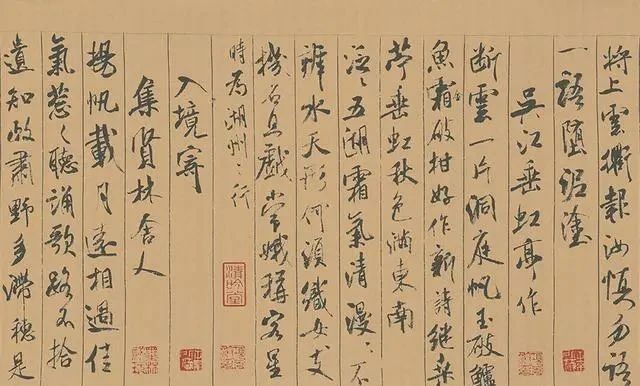 將上雲衢報汝慎勿語
一語墮泥塗
吳江垂虹亭作
斷雲一片洞庭帆玉破鱸
魚霜金破柑好作新詩繼桑
苧垂虹秋色滿東南
泛泛五湖霜氣清漫漫不
辨水天形何須織女支
機石且戲常娥稱客星
時為湖州之行
清吟堂
入境寄
集賢林舍人
揚帆載月遠相過佳
氣蔥蔥聽誦歌路不拾
遺知政肅野多滯穗是